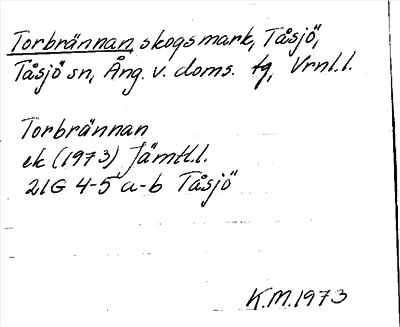 Torbrännan, skogsmark, Tåsjö,
Tåsjö sn, Ång. v. doms. tg, Vrnl.l.
Torbrännan
ek (1973) Jämtl.l.
21G 4-5 a-b Tåsjö
K.M.1973